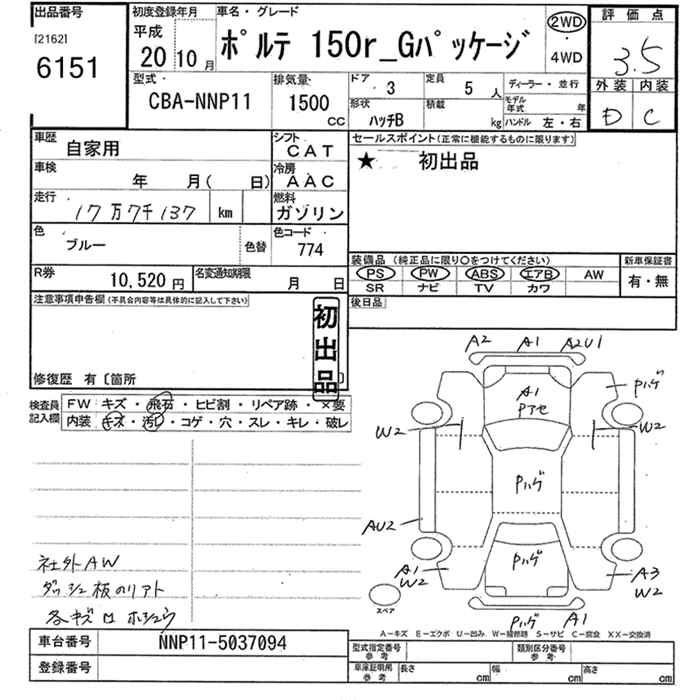 出品番号
[2162]
6151
初度登録年月
平成
20 10月
車名・グレード
ポルテ 150r_Gパッケージ
2WD
・
4WD
評価点
3.5
外装 内装
D C
型式
CBA-NNP11
排気量
1500
CC
ドア
3
定員
5 人
ディーラー・並行
形状
ハッチB
積載
kg
モデル年式
年
ハンドル 左・右
車歴
自家用
シフト
CAT
車検
年 月( 日)
冷房
AAC
走行
17万7千137 km
燃料
ガソリン
色
ブルー
色替
色コード
774
R券
10,520 円
名変通知期限
月 日
セールスポイント(正常に機能するものに限ります)
★ 初出品
装備品 (純正品に限り○をつけてください)
PS PW ABS エアB AW
SR ナビ TV カワ
新車保証書
有・無
後日品
注意事項申告欄(不具合内容等は具体的に記入して下さい)
初出品
修復歴 有〔箇所 〕
検査員記入欄
FW キズ・飛石・ヒビ割・リペア跡・×要
内装 キズ・汚レ・コゲ・穴・スレ・キレ・破レ
A2 A1 A2U1
A1
Pアセ
Pハゲ
W2
W2
Pハゲ
AU2
A1
W2
Pハゲ
A3
W2
スペア
Pハゲ A1
社外AW
ダッシュ板のリアト
各キズ ホシュウ
A−キズ E−エクボ U−凹み W−補修跡 S−サビ C−腐食 XX−交換済
車台番号
NNP11-5037094
登録番号
型式指定番号
参考
類別区分番号
参考
車庫証明用
参考
長さ cm
幅 cm
高さ cm